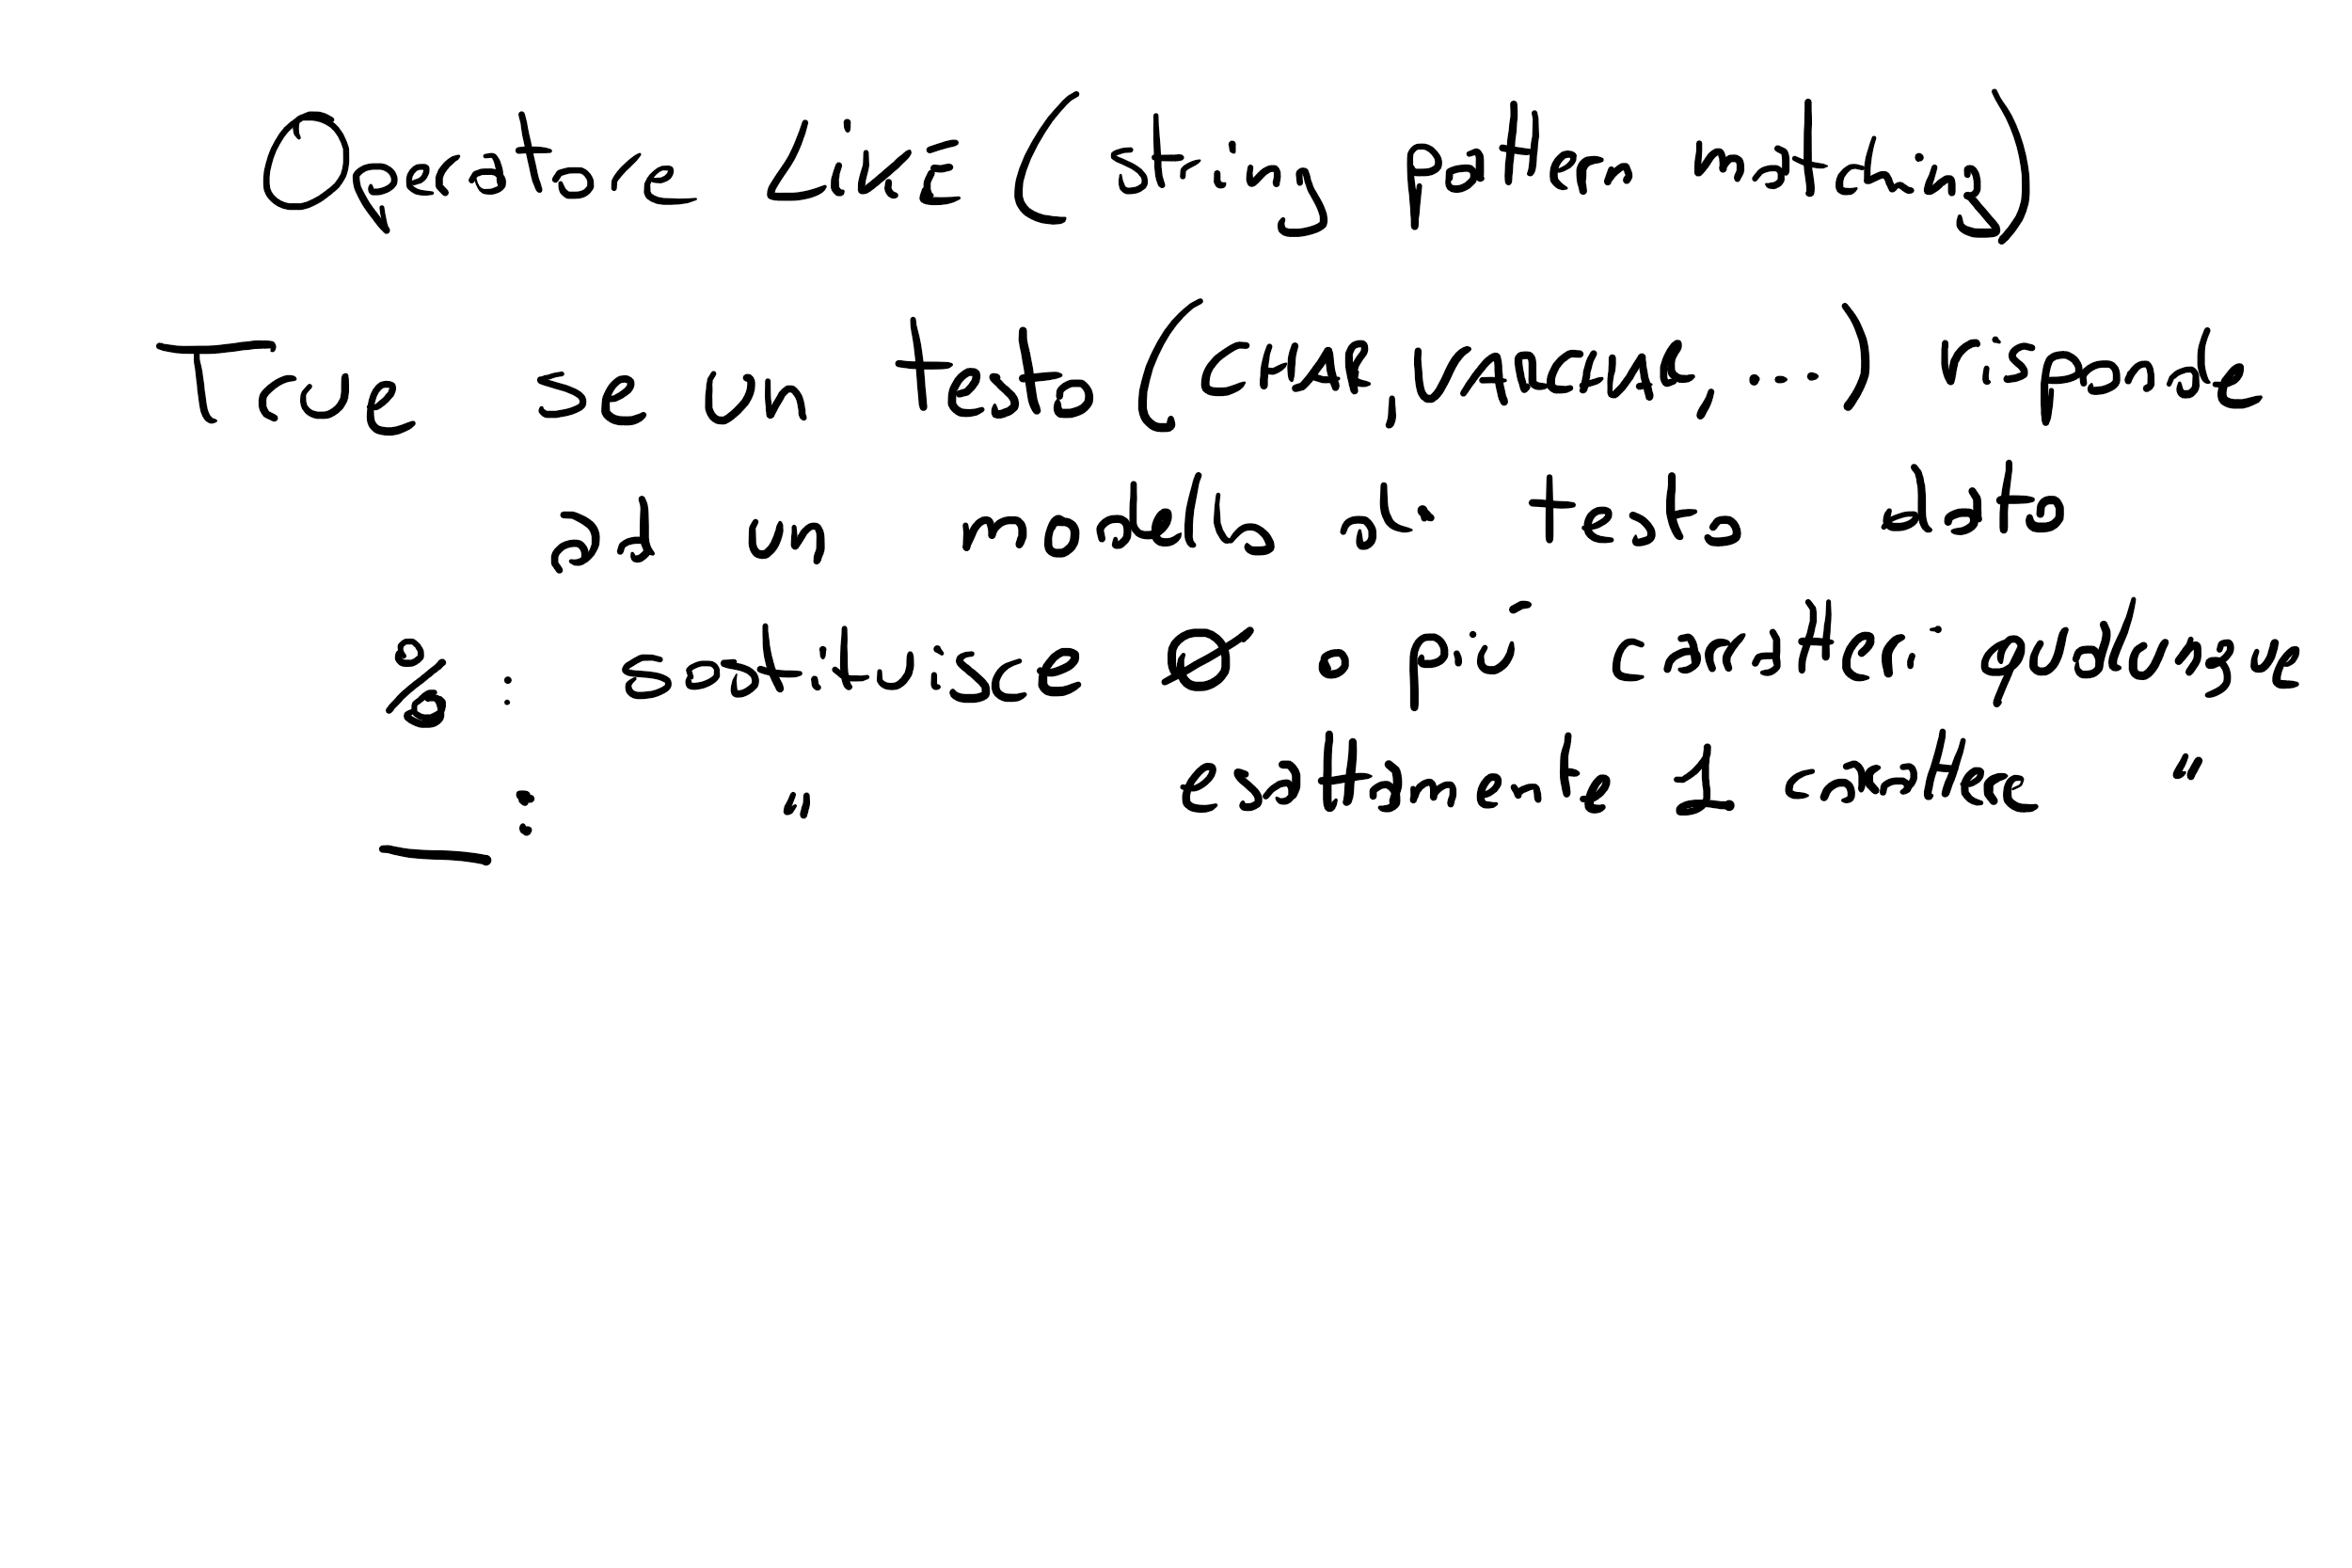 Operatore LikE (string pattern matching)
True se un testo (CHAR, VARCHAR, ...) risponde
ad un modello di testo dato
%: sostituisce 0 o più caratteri qualunque
_: " esattamente 1 carattere "